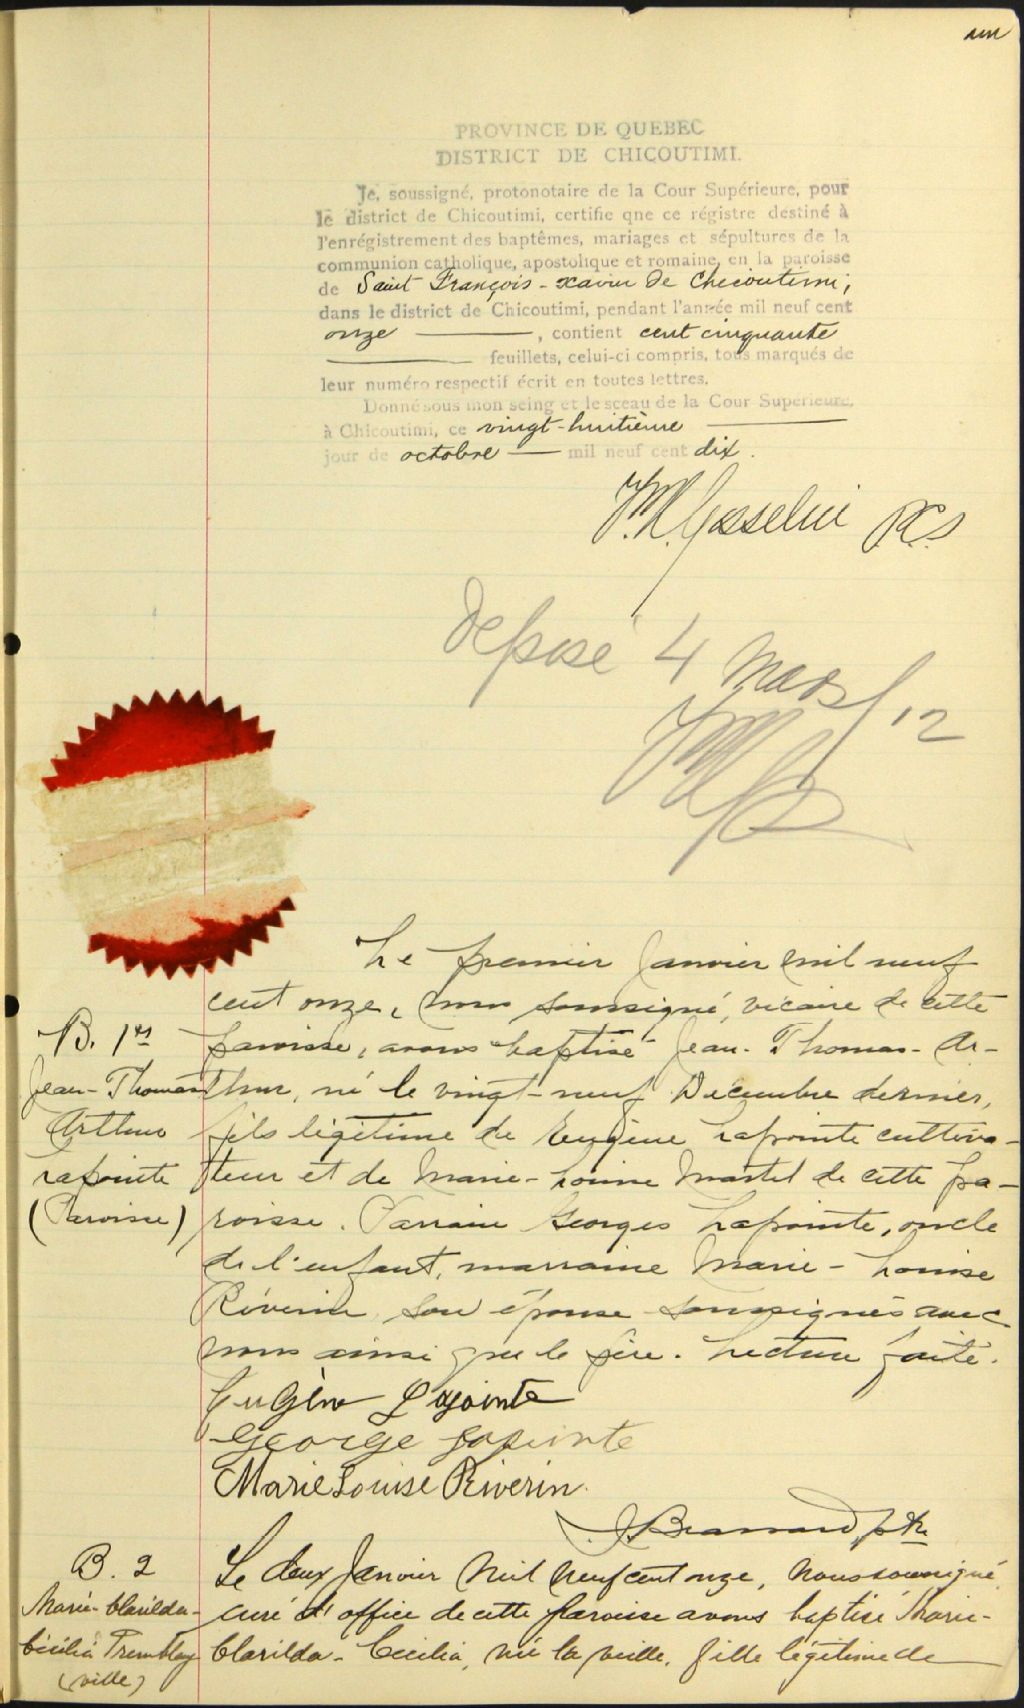 un
PROVINCE DE QUEBEC
DISTRICT DE CHICOUTIMI.
Je, soussigné, protonotaire de la Cour Supérieure, pour
le district de Chicoutimi, certifie qne ce régistre destiné à
l'enrégistrement des baptêmes, mariages et sépultures de la
communion catholique, apostolique et romaine, en la paroisse
de Saint François-xavier de Chicoutimi,
dans le district de Chicoutimi, pendant l'année mil neuf cent
onze , contient cent cinquante
feuillets, celui-ci compris, tous marqués de
leur numéro respectif écrit en toutes lettres.
Donné sous mon seing et le sceau de la Cour Superieure,
à Chicoutimi, ce vingt-huitième
jour de octobre mil neuf cent dix.
Gosselin P.C.S
Déposé 4 Mars /12
Le premier Janvier mil neuf
cent onze, nous soussigné, vicaire de cette
B. 1er
paroisse, avons baptisé Jean-Thomas-Ar-
Jean-Thomas
thur, né le vingt-neuf Décembre dernier,
Arthur
fils légitime de Eugène Lapointe cultiva-
Lapointe
teur et de Marie-Louise Martel de cette pa-
(Paroisse)
roisse. Parrain Georges Lapointe, oncle
de l'enfant, marraine Marie-Louise
Riverin son épouse soussignés avec
nous ainsi que le père. Lecture faite.
Eugène Lapointe
George Lapointe
Marie Louise Riverin.
ptre
B. 2
Le deux Janvier mil neuf cent onze, nous soussigné
Marie-Clarilda-
curé d'office de cette paroisse avons baptisé Marie-
Cécilia Tremblay
Clarilda-Cecilia, née la veille, fille légitime de
(ville)